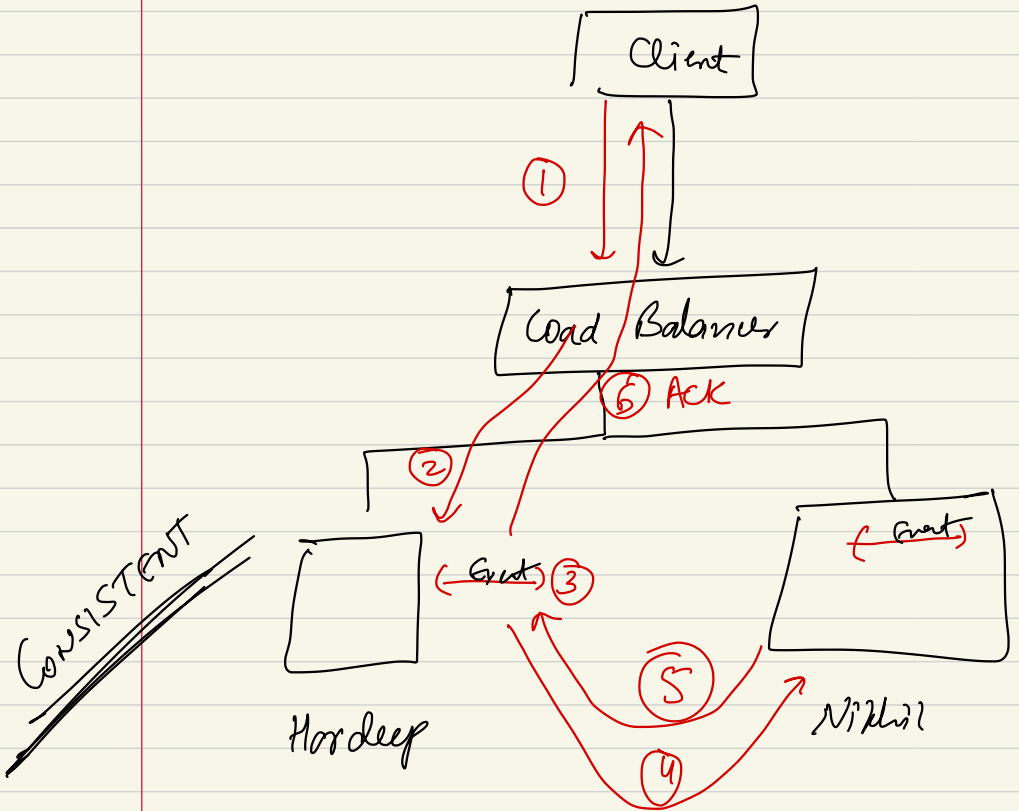 Client
①
Load Balancer
⑥ ACK
②
Event
Event ③
CONSISTENT
⑤
Hardeep
Nikhil
④